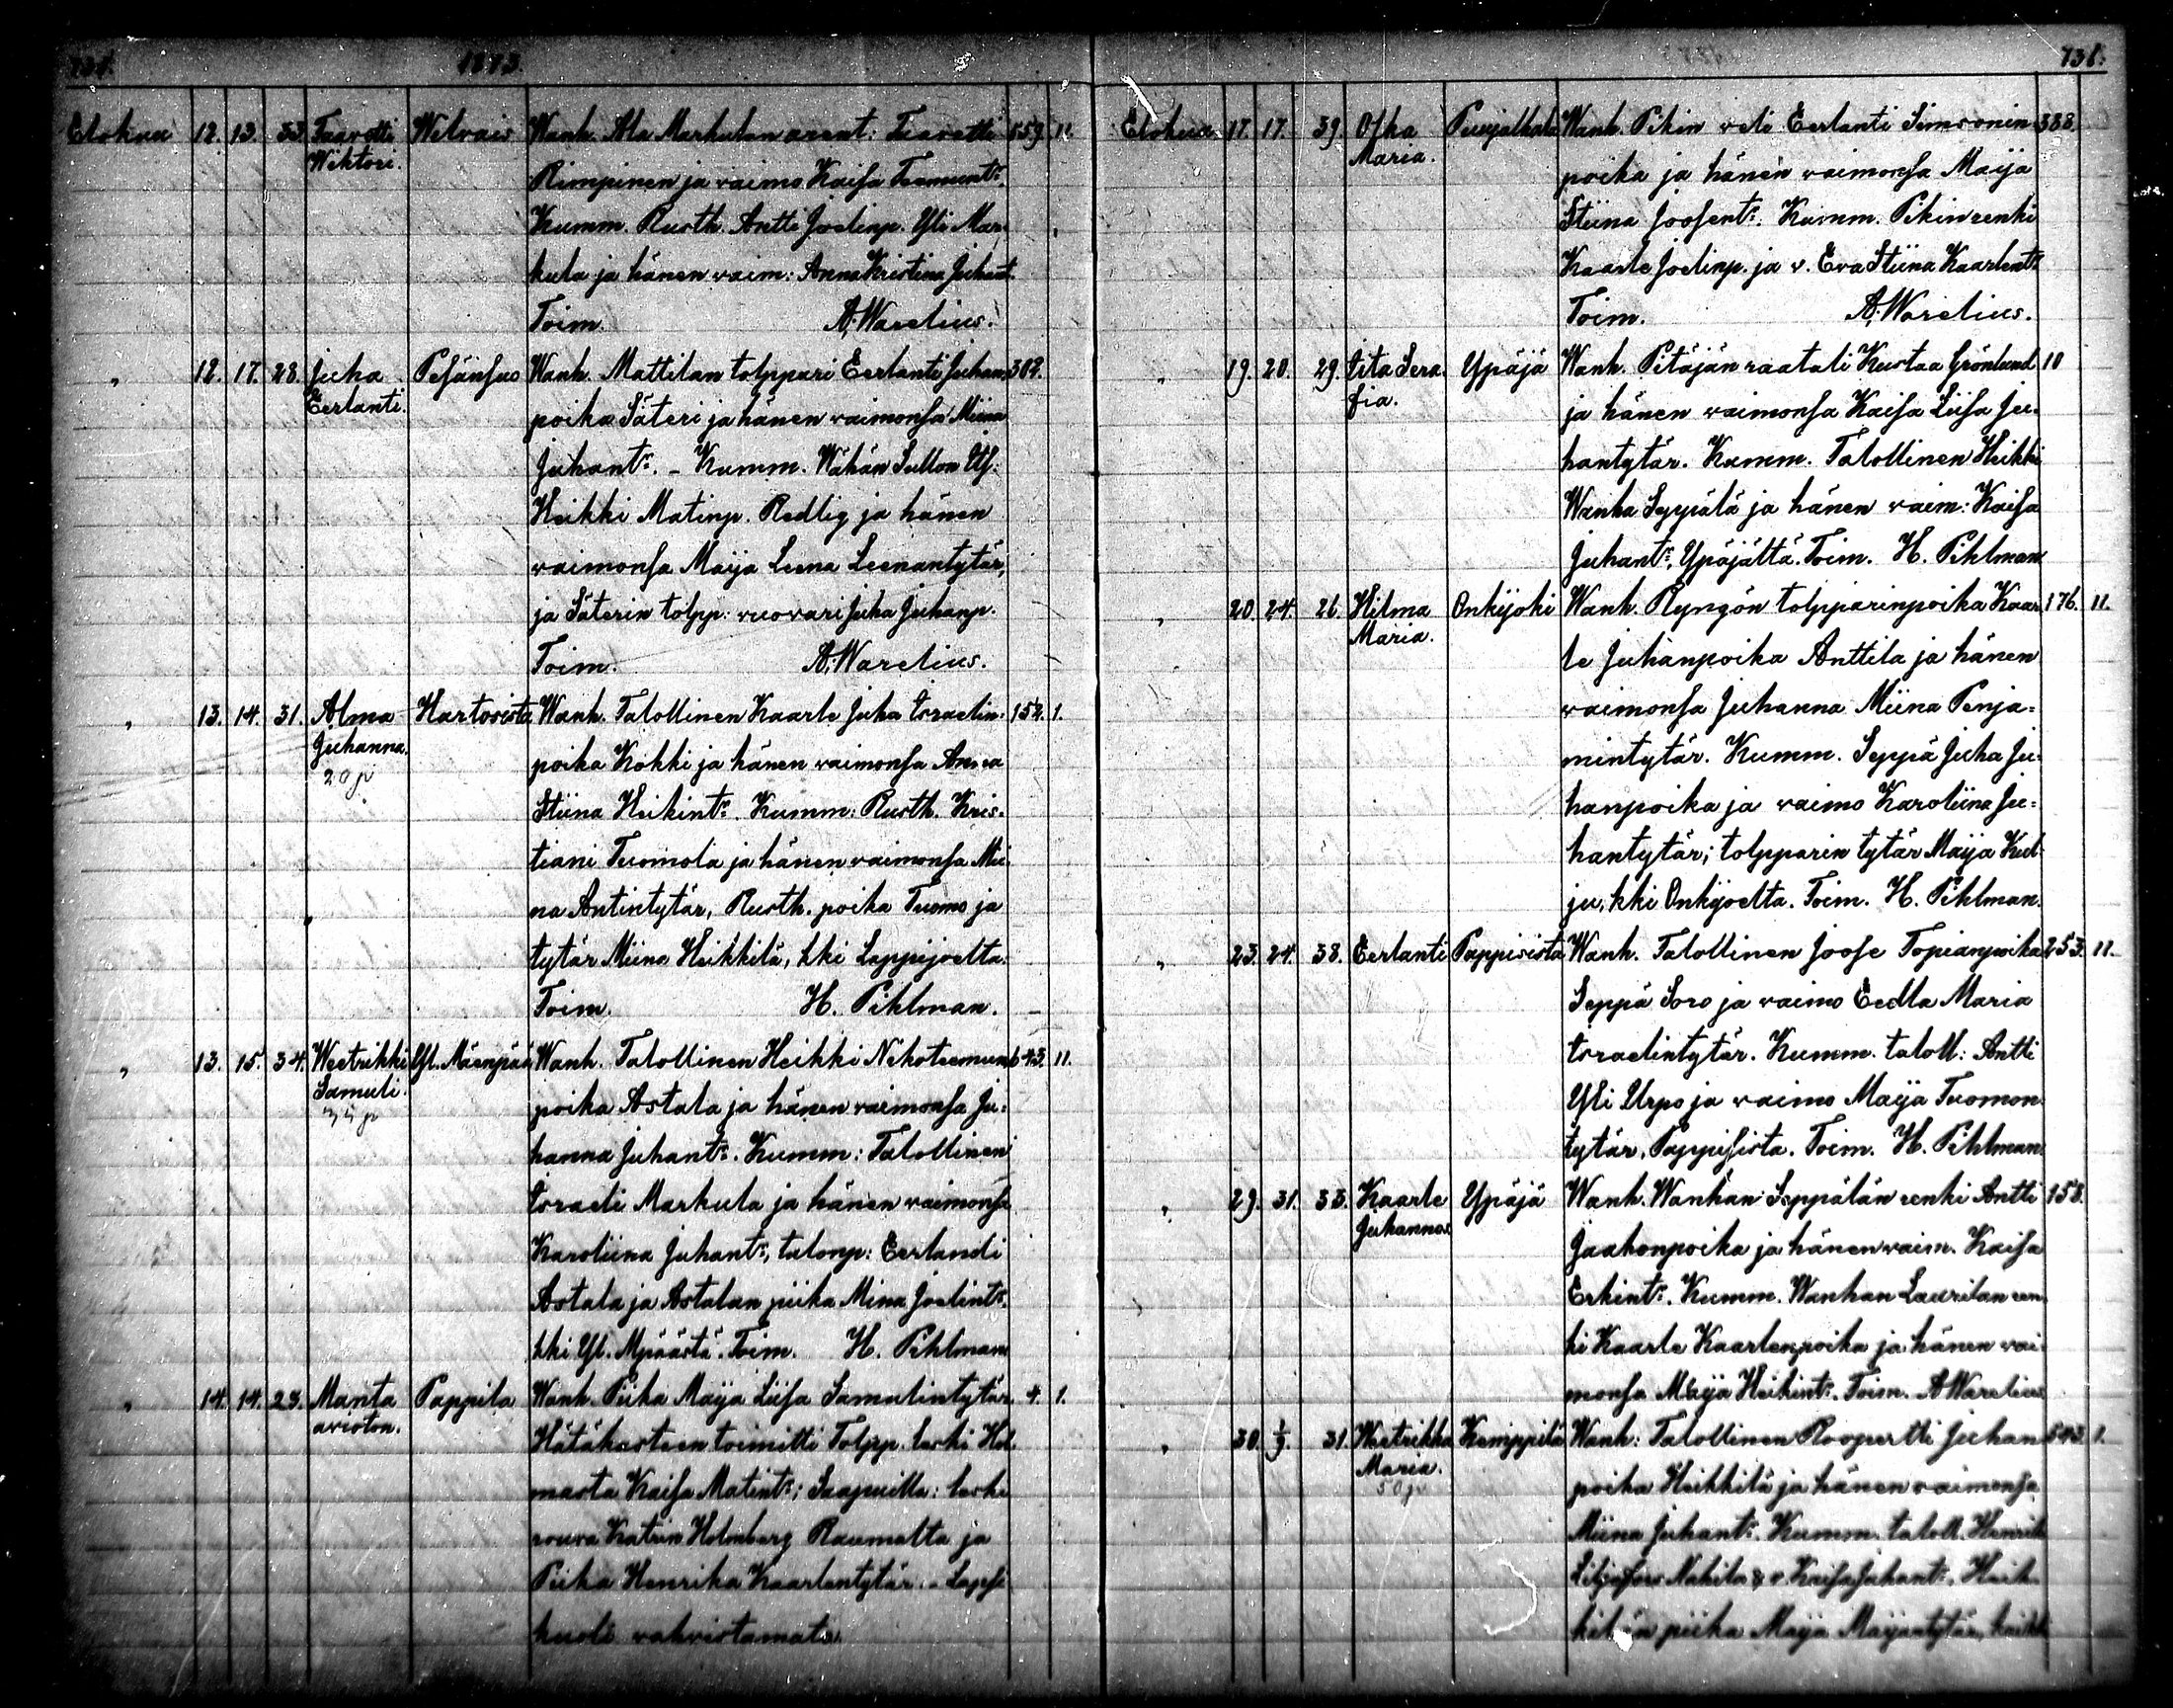 731. 1873.
Elokuu 12. 13. 33. Taavetti Welvais Wanh. Ala Markulan arent: Taavetti 559. 11.
Wihtori. Rimpinen ja vaimo Kaisa
Kumm. Rusth. Antti Joelinp. Yli Mar-
kula ja hänen vaim: Anna Kristina Juhant.
Toim. A. Warelius.
" 12. 17. 28. Juha Pesänsuo Wanh. Mattilan tolppari Eerlanti Juhan 302.
Eerlanti. poika Säteri ja hänen vaimonsa Miina
Juhantr. - Kumm. Wähän Sullon
Heikki Matinp. Redlig ja hänen
vaimonsa Maija Leena Leenantytär,
ja Säterin tolpp: vuovari Juha Juhanp.
Toim. A. Warelius.
" 13. 14. 31. Alma Hartoosista Wanh. Talollinen Kaarle Juha Israelin- 152. 1.
Juhanna. poika Kokki ja hänen vaimonsa Anna
20 p Stiina Heikintr. Kumm: Rusth. Kris-
tiani Tuomola ja hänen vaimonsa Mii-
na Antintytär, Rusth. poika Tuomo ja
tytär Miina Heikkilä, kki Lappijoelta.
Toim. H. Pihlman.
" 13. 15. 34. Weetrikki Yl. Mäenpää Wanh. Talollinen Heikki Nekoteemun 643. 11.
Samuli. poika Astala ja hänen vaimonsa Ju-
hanna Juhantr. Kumm: Talollinen
Israeli Markula ja hänen vaimonsa
Karoliina Juhantr, talonp: Eerlandi
Astala ja Astalan piika Mina Joelintr.
kki Yl. Mpäästä. Toim. H. Pihlman
" 14. 14. 23. Manta Pappila Wanh. Piika Maija Liisa Samulintytär 4. 1.
avioton. Hätäkasteen toimitti Tolpp. leski Hol-
masta Kaisa Matintr; Saapuilla: leski
rouva Katrin Holmberg Raumalta ja
Piika Henrika Kaarlentytär. - Lapsi
kuoli vahvistamata.
731.
Elokuu 17. 17. 39. Olka Peuijalkola Wanh. Pihin veli Eerlanti Simsonin 388.
Maria. poika ja hänen vaimonsa Maija
Stiina Joosentr. Kumm. Pihin renki
Kaarle Joelinp. ja v. Eva Stiina Kaarlentr
Toim. A. Warelius.
" 19. 20. 29. Iita Sera- Ypäjä Wanh. Pitäjän raatali Kustaa Grönlund 10
fia. ja hänen vaimonsa Kaisa Liisa Ju-
hantytär. Kumm. Talollinen Heikki
Wanha Seppälä ja hänen vaim: Kaisa
Juhantr, Ypäjältä. Toim. H. Pihlman
" 20. 24. 26. Hilma Onkijoki Wanh. Ryngön tolpparinpoika Kaar- 176. 11.
Maria. le Juhanpoika Anttila ja hänen
vaimonsa Juhanna Miina Penja-
mintytär. Kumm. Seppä Juha Ju-
hanpoika ja vaimo Karoliina Ju-
hantytär; tolpparin tytär Maija Kul-
ju, kki Onkijoelta. Toim. H. Pihlman.
" 23. 24. 38. Eerlanti Pappisista Wanh. Talollinen Joose Topianpoika 253. 11.
Seppä Soro ja vaimo Eedla Maria
Israelintytär. Kumm. taloll: Antti
Yli Urpo ja vaimo Maija Tuomon
tytär, Pappisista. Toim. H. Pihlman
" 29. 31. 33. Kaarle Ypäjä Wanh. Wanhan Seppälän renki Antti 158.
Juhannes Jaakonpoika ja hänen vaim. Kaisa
Erkintr. Kumm. Wanhan Laurilan ren-
ki Kaarle Kaarlenpoika ja hänen vai-
monsa Maija Heikintr. Toim. A Warelius
" 30. 1/9. 31. Weetrikka Kemppilä Wanh: Talollinen Roopertti Juhan 1.
Maria. poika Heikkilä ja hänen vaimonsa
50 p Miina Juhantr. Kumm. taloll. Henrik
Nahila & v. Kaisa Juhantr, Heik-
kilän piika Maija Maijantytär, kaikki